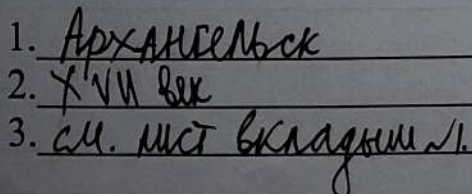 1. Архангельск
2. XVII век
3. см. лист вкладыш №1.